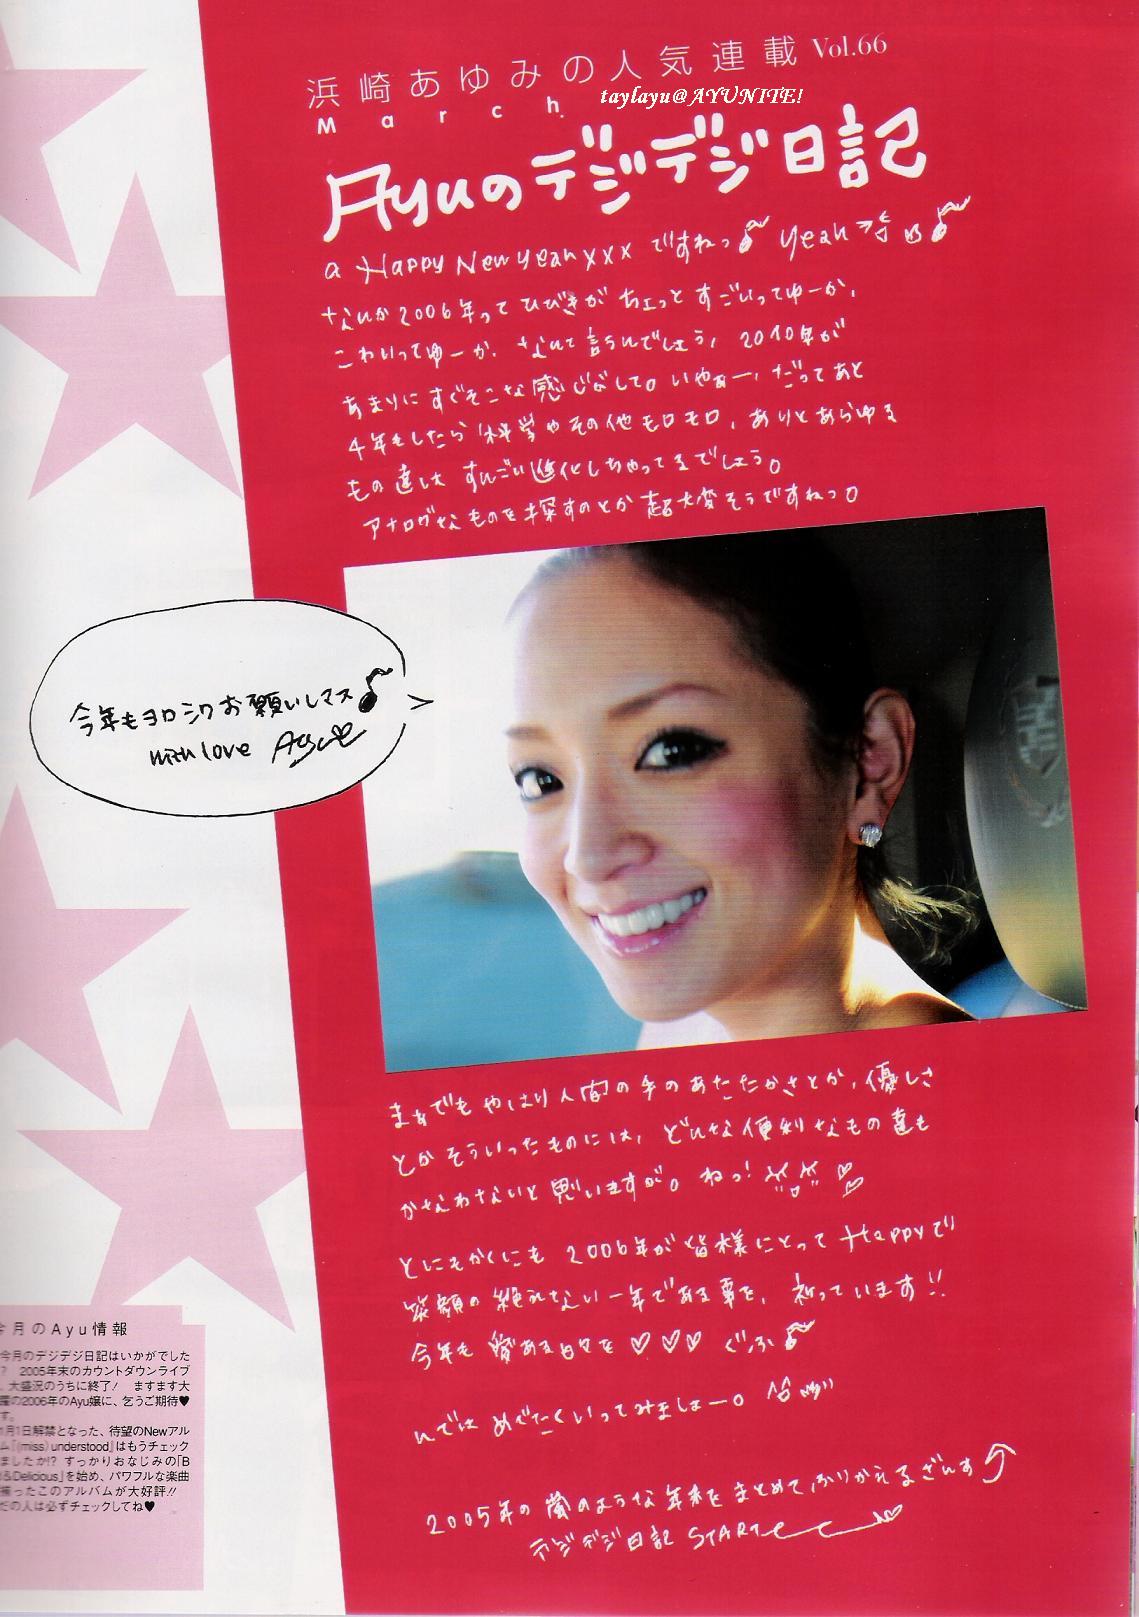 浜崎あゆみの人気連載 Vol.66
March.
taylayu@AYUNITE!
Ayuのデジデジ日記
a Happy New Year xxx ですねっ♪ yeah
なんか2006年ってひびきがちょっとすごいってゆーか、
こわいってゆーか、なんて言うんでしょう、2010年が
あまりにすぐそこな感じがして。いやぁー、だってあと
4年もしたら科学やその他モロモロ、ありとあらゆる
もの達はすんごい進化しちゃってるでしょう。
アナログなものを探すのとか超大変そうですねっ。
今年もヨロシクお願いしマス♪
with love Ayu
まぁでもやはり人間の手のあたたかさとか、優しさ
とかそういったものには、どんな便利なもの達も
かなわないと思いますが。ねっ!
とにもかくにも2006年が皆様にとってHappyで
笑顔の絶えない一年である事を、祈っています!!
今年も愛ある日々を♡♡♡ ぐふ♪
んではめでたくいってみましょー。
2005年の嵐のような年末をまとめてふりかえるざんす
デジデジ日記 START
今月のAyu情報
今月のデジデジ日記はいかがでした
? 2005年末のカウントダウンライブ
、大盛況のうちに終了! ますます大
躍の2006年のAyu嬢に、乞うご期待♥
す。
1月1日解禁となった、待望のNewアル
ム「(miss)understood」はもうチェック
ましたか!? すっかりおなじみの「B
d&Delicious」を始め、パワフルな楽曲
揃ったこのアルバムが大好評!!
だの人は必ずチェックしてね♥